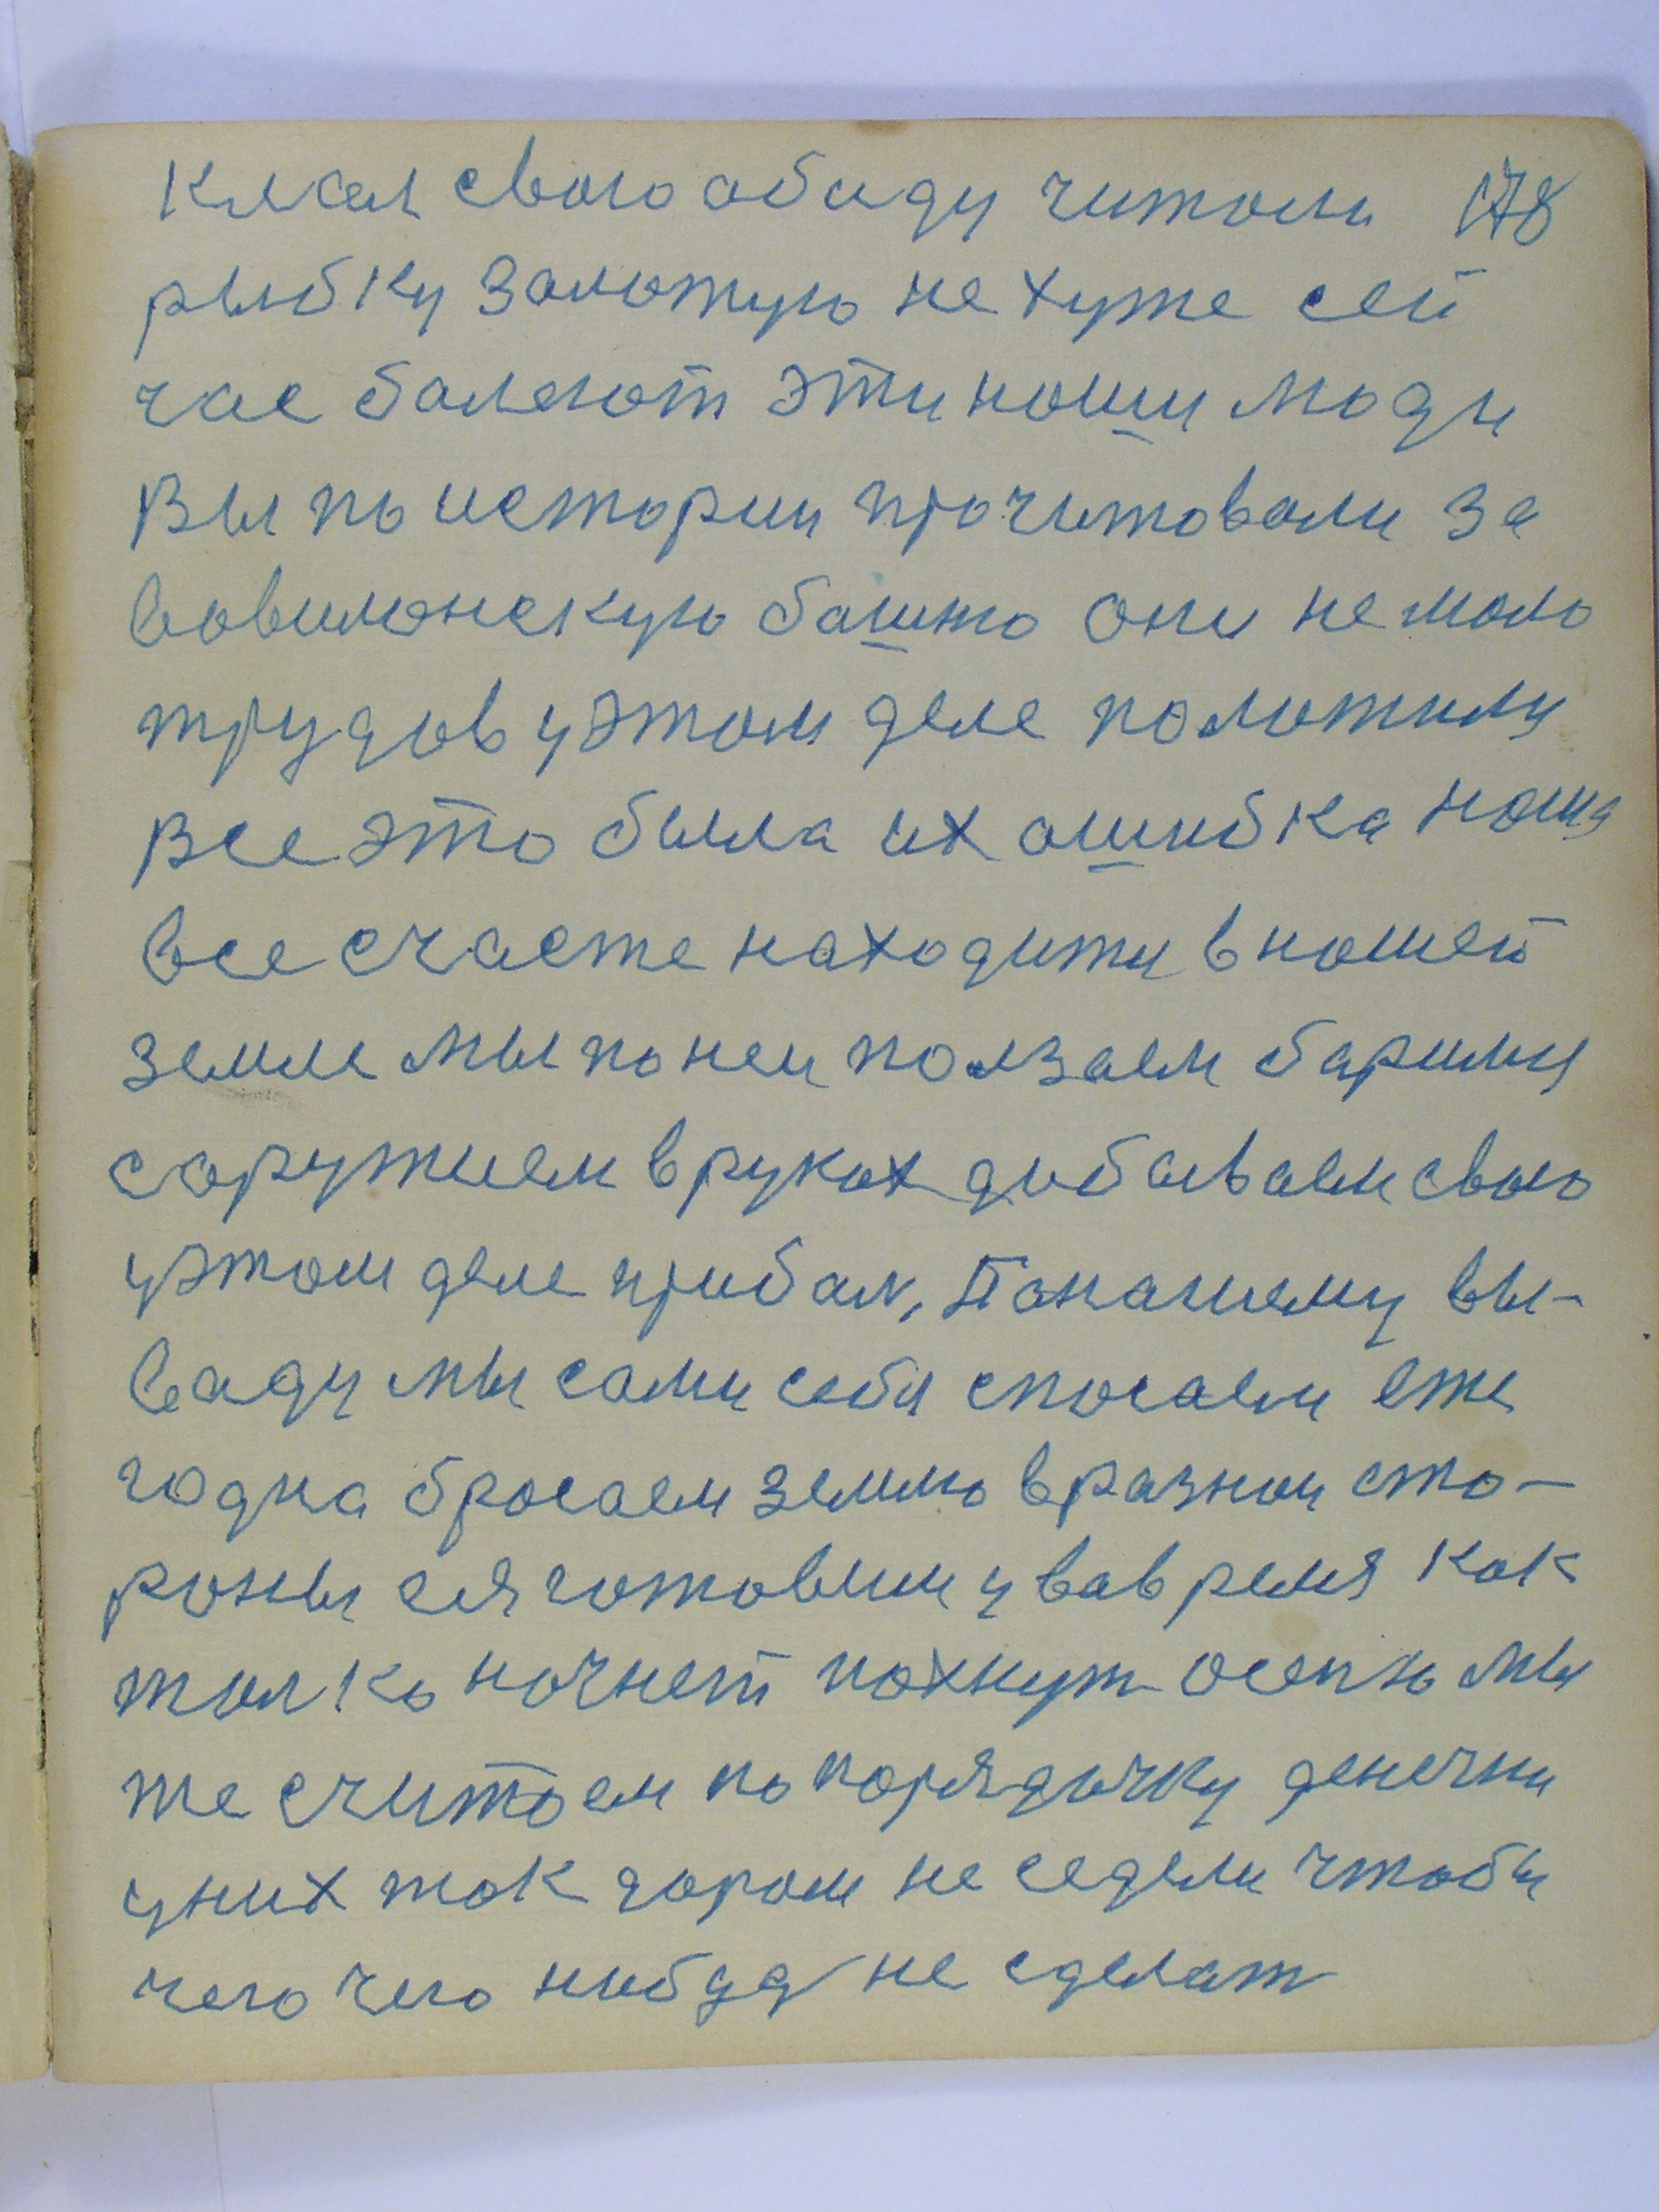 клал сваю абиду читоли 178
рыбку золотую не хуже сей
час балеют эти ноши люди
Вы по истории прочитовали за
вовилонскую башню они не мало
трудов у этом деле положили
все это была их ошибка наша
все счасте находити в нашей
земле мы по ней ползаем баримся
соружием в руках добываем сваю
у этом деле прибал, Понашему вы-
ваду мы сами себя спосаем еже
годна бросаем землю в разнои сто-
роны ея готовим у вавремя как
толко начнет пахнут осеню мы
же считоем по порядочку денечки
у них так даром не седели чтобы
чего чего нибудь не сделат